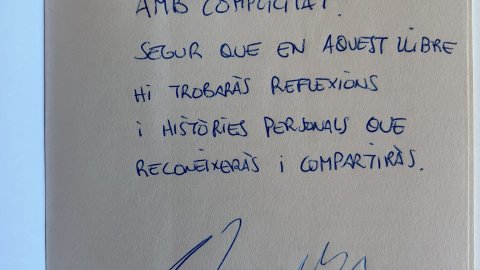 AMB COMPLICITAT.
SEGUR QUE EN AQUEST LLIBRE
HI TROBARÀS REFLEXIONS
I HISTÒRIES PERSONALS QUE
RECONEIXERÀS I COMPARTIRÀS.